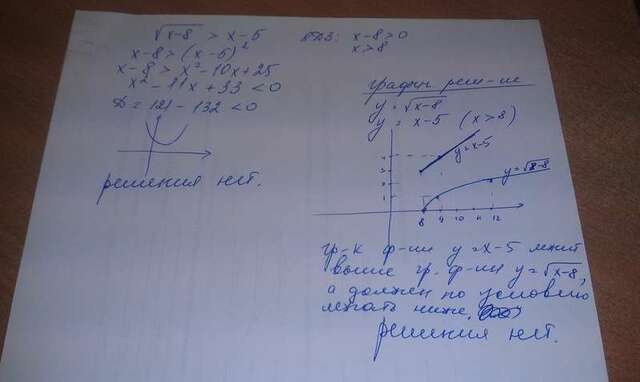 √x-8 > x-5
x-8 > (x-5)²
x-8 > x² - 10x + 25
x² - 11x + 33 < 0
D = 121 - 132 < 0
решения нет.
ОДЗ: x-8>0
x>8
График реш-ие
y = √x-8
y = x-5 (x>8)
y=x-5
y=√x-8
8 9 10 11 12
гр-к ф-ии y=x-5 лежит
выше гр. ф-ии y=√x-8,
а должен по условию
лежать ниже,
решения нет.